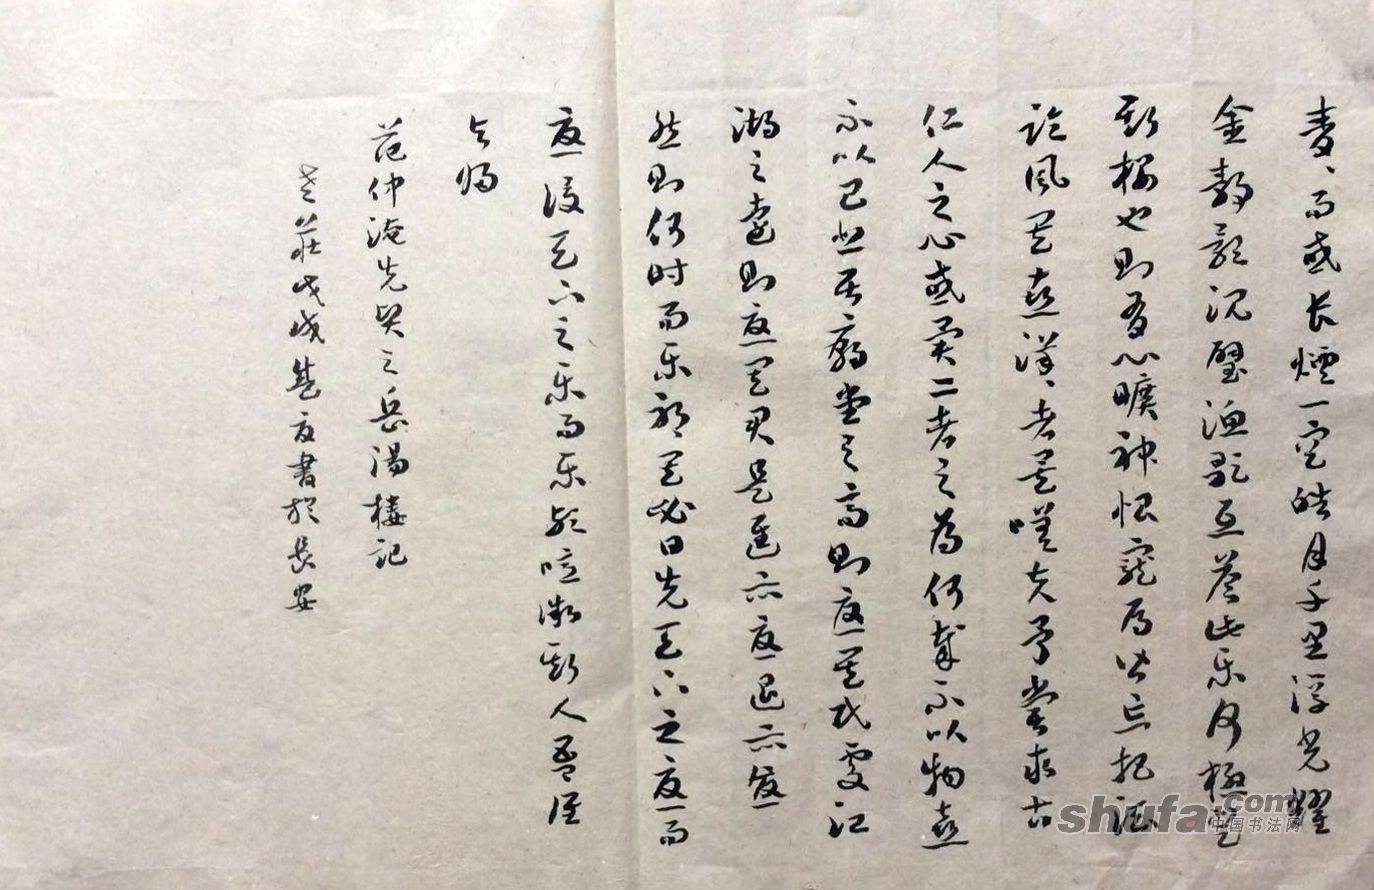 青、而或长煙一空皓月千里浮光耀
金静影沉璧漁歌互答此乐何極登
斯楼也则有心曠神怡寵辱皆忘把酒
临風其喜洋、者矣嗟夫予嘗求古
仁人之心或異二者之為何哉不以物喜
不以己悲居廟堂之高则憂其民处江
湖之遠则憂其君是進亦憂退亦憂
然则何时而乐耶其必曰先天下之憂而
憂後天下之乐而乐欤噫微斯人吾谁
与归
范仲淹先賢之岳陽楼記
老莊戊戌夏書於長安
shufa.com
中国书法网